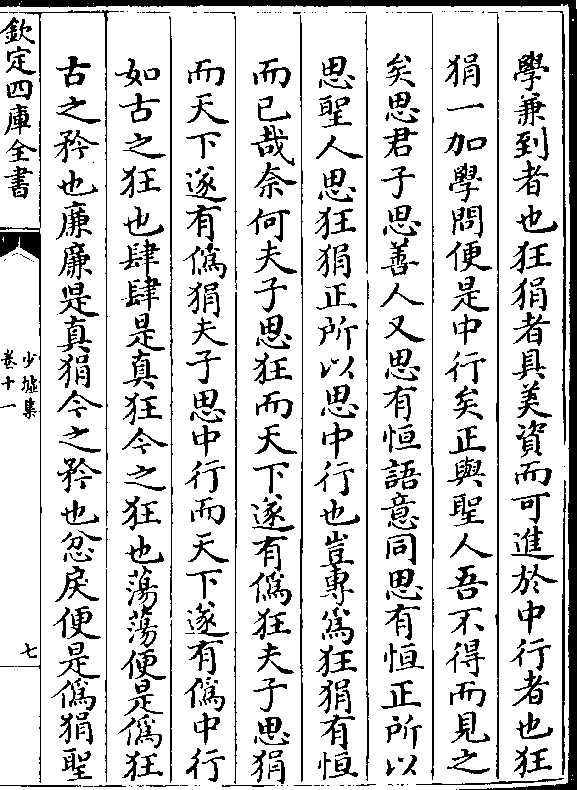 學兼到者也狂狷者具美資而可進於中行者也狂
狷一加學問便是中行矣正與聖人吾不得而見之
矣思君子思善人又思有恒語意同思有恒正所以
思聖人思狂狷正所以思中行也豈專為狂狷有恒
而已哉奈何夫子思狂而天下遂有僞狂夫子思狷
而天下遂有僞狷夫子思中行而天下遂有僞中行
如古之狂也肆肆是真狂今之狂也蕩蕩便是僞狂
古之矜也廉廉是真狷今之矜也忿戾便是僞狷聖
欽定四庫全書
少墟集
卷十一
七